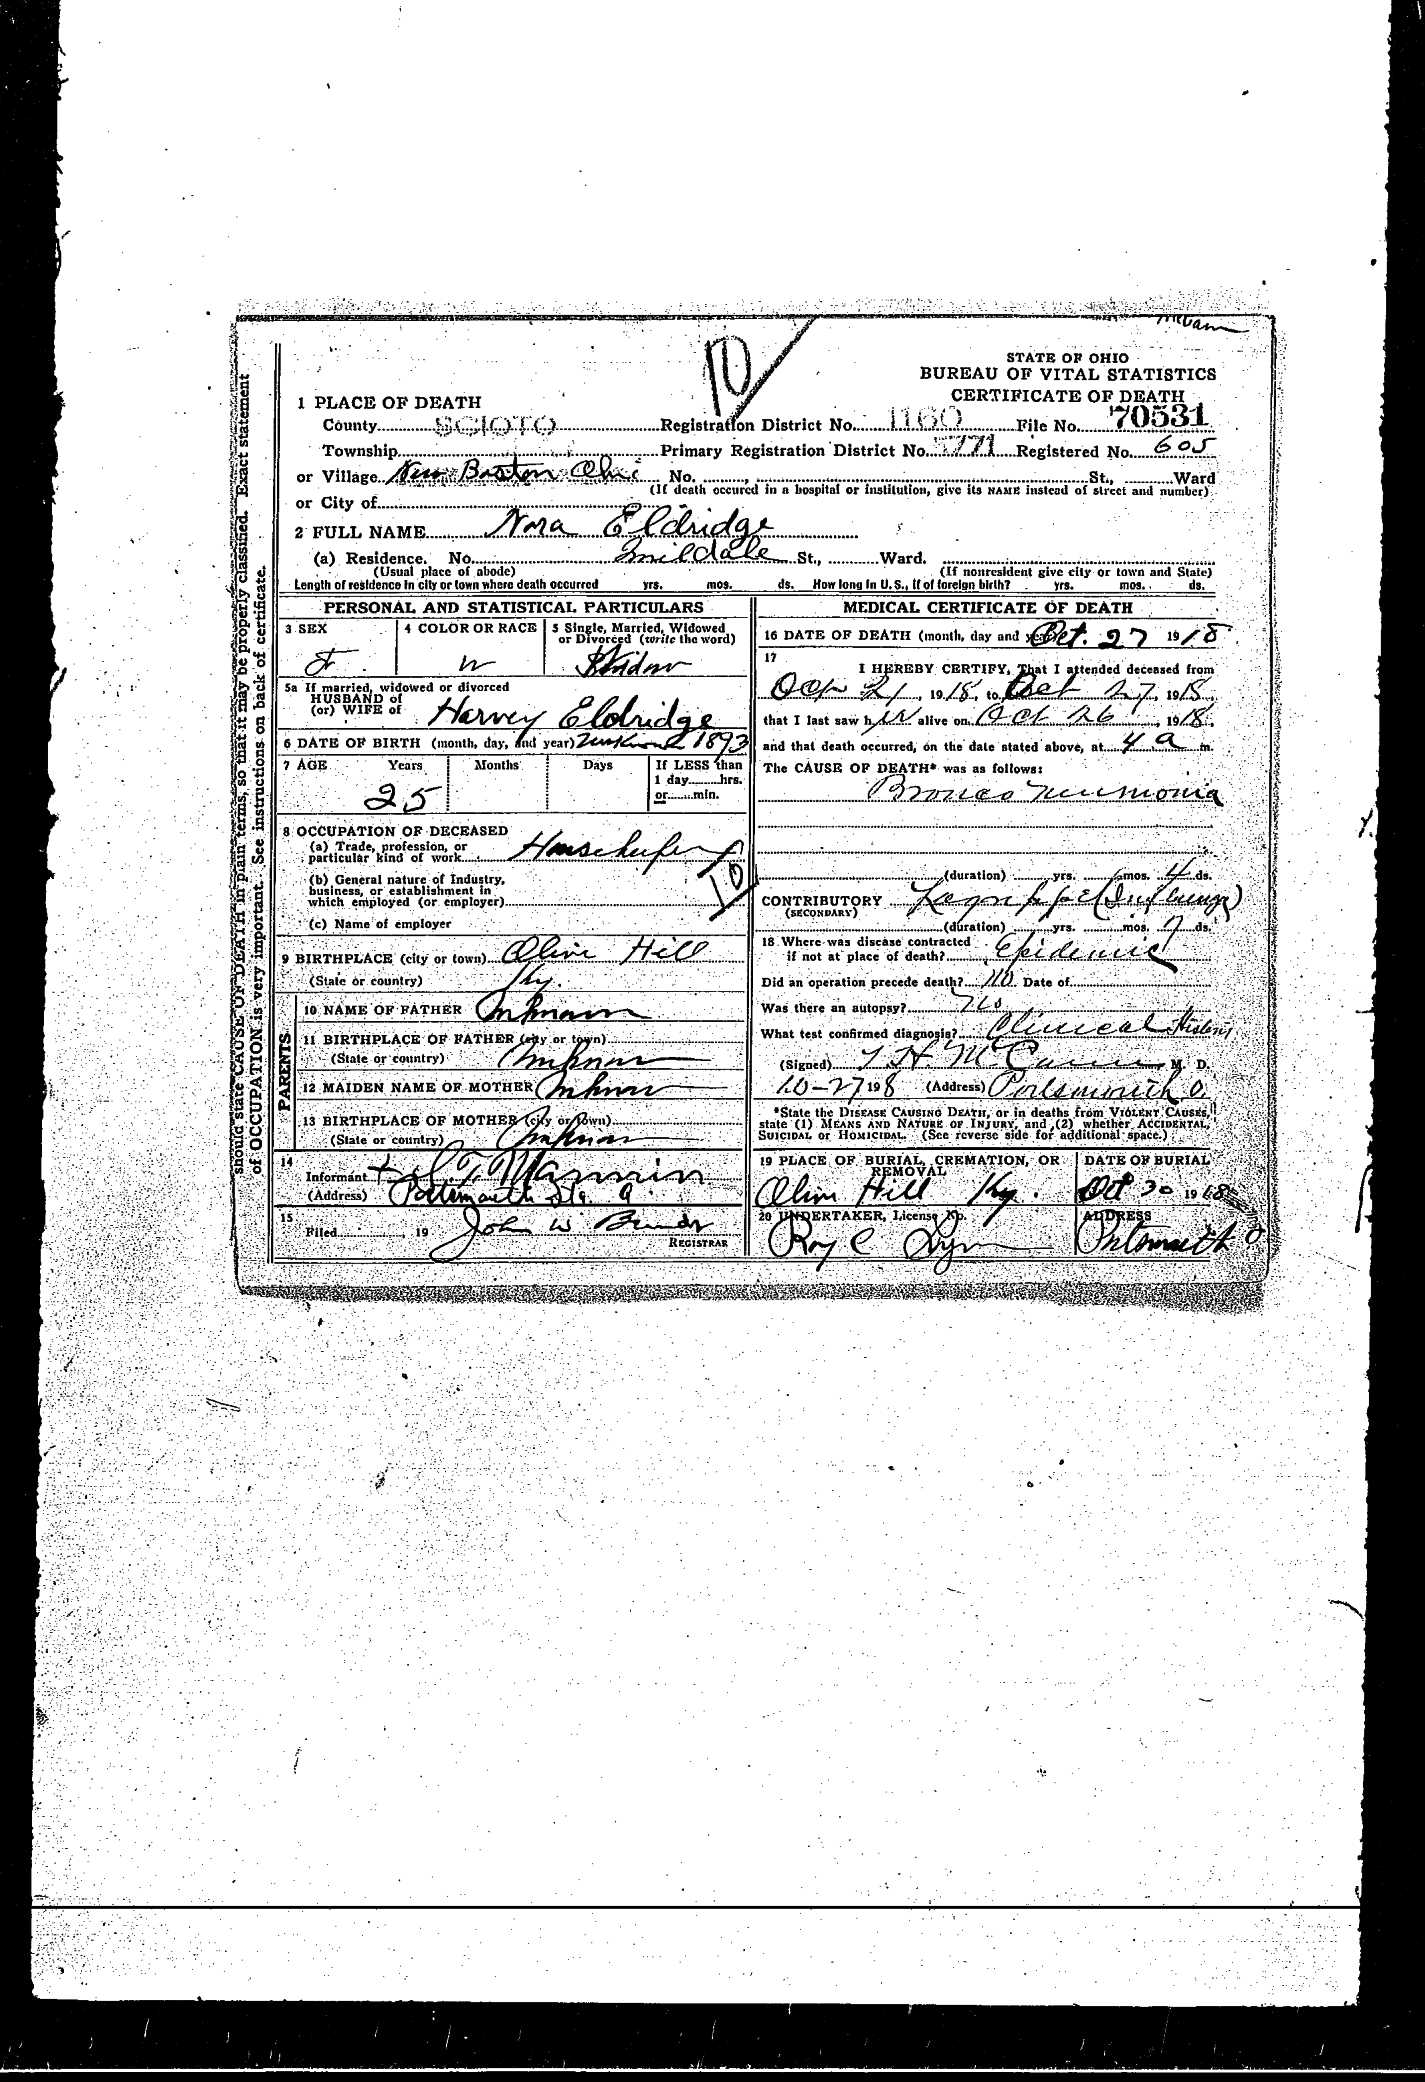 McCann
10
STATE OF OHIO
BUREAU OF VITAL STATISTICS
CERTIFICATE OF DEATH
1 PLACE OF DEATH
County SCIOTO Registration District No. 1160 File No. 70531
Township Primary Registration District No. 5771 Registered No. 605
or Village New Boston Ohio No. St., Ward
(If death occured in a hospital or institution, give its NAME instead of street and number)
or City of
2 FULL NAME Nora Eldridge
(a) Residence. No. St., Ward.
(Usual place of abode) (If nonresident give city or town and State)
Length of residence in city or town where death occurred yrs. mos. ds. How long in U. S., if of foreign birth? yrs. mos. ds.
PERSONAL AND STATISTICAL PARTICULARS
3 SEX 4 COLOR OR RACE 5 Single, Married, Widowed
or Divorced (write the word)
F. W Widow
5a If married, widowed or divorced
HUSBAND of
(or) WIFE of Harvey Eldridge
6 DATE OF BIRTH (month, day, and year) 1893
7 AGE Years Months Days If LESS than
1 day hrs.
or min.
25
8 OCCUPATION OF DECEASED
(a) Trade, profession, or
particular kind of work Housekeeper
10
(b) General nature of Industry,
business, or establishment in
which employed (or employer)
(c) Name of employer
9 BIRTHPLACE (city or town) Olive Hill
(State or country) Ky.
PARENTS
10 NAME OF FATHER Unknown
11 BIRTHPLACE OF FATHER (city or town)
(State or country) Unknown
12 MAIDEN NAME OF MOTHER Unknown
13 BIRTHPLACE OF MOTHER (city or town)
(State or country) Unknown
14
Informant Mannin
(Address) Portsmouth
15
Filed 19 John W
REGISTRAR
MEDICAL CERTIFICATE OF DEATH
16 DATE OF DEATH (month, day and year) Oct. 27 1918
17
I HEREBY CERTIFY, That I attended deceased from
Oct 21, 1918, to Oct 27, 1918,
that I last saw her alive on Oct 26, 1918,
and that death occurred, on the date stated above, at 4 a m.
The CAUSE OF DEATH* was as follows:
Bronco Neumonia
(duration) yrs. mos. 4 ds.
CONTRIBUTORY Lagrippe (Influenza)
(SECONDARY)
(duration) yrs. mos. 7 ds.
18 Where was disease contracted
if not at place of death? Epidemic
Did an operation precede death? No Date of
Was there an autopsy? No
What test confirmed diagnosis? Clinical History
(Signed) T H McCann M. D.
10-27 1918 (Address) Portsmouth O.
*State the DISEASE CAUSING DEATH, or in deaths from VIOLENT CAUSES,
state (1) MEANS AND NATURE OF INJURY, and (2) whether ACCIDENTAL,
SUICIDAL or HOMICIDAL. (See reverse side for additional space.)
19 PLACE OF BURIAL, CREMATION, OR
REMOVAL DATE OF BURIAL
Olive Hill Ky. Oct 30 1918
20 UNDERTAKER, License No. ADDRESS
Roy C Lynn Portsmouth O
should state CAUSE OF DEATH in plain terms, so that it may be properly classified. Exact statement
of OCCUPATION is very important. See instructions on back of certificate.